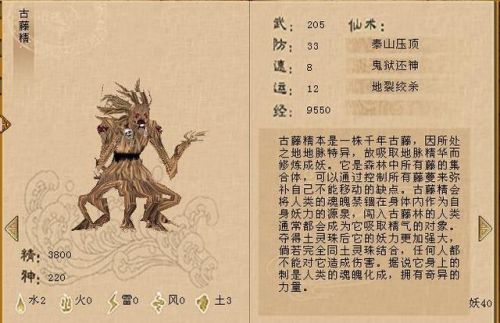 古藤精
精: 3800
神: 220
水2 火0 雷0 风0 土3
武: 205 仙术:
防: 33 泰山压顶
速: 8 鬼狱还神
运: 12 地裂绞杀
经: 9550
古藤精本是一株千年古藤，因所处
之地地脉特异，故吸取地脉精华而
修炼成妖。它是森林中所有藤的集
合体，可以通过控制所有藤蔓来弥
补自己不能移动的缺点。古藤精会
将人类的魂魄禁锢在身体内作为自
身妖力的源泉，闯入古藤林的人类
通常都会成为它吸取精气的对象。
夺得土灵珠后它的妖力更加强大，
倘若完全同土灵珠结合，任何人都
不能对它造成伤害。据说它身上的
刺是人类的魂魄化成，拥有奇异的
力量。
妖40